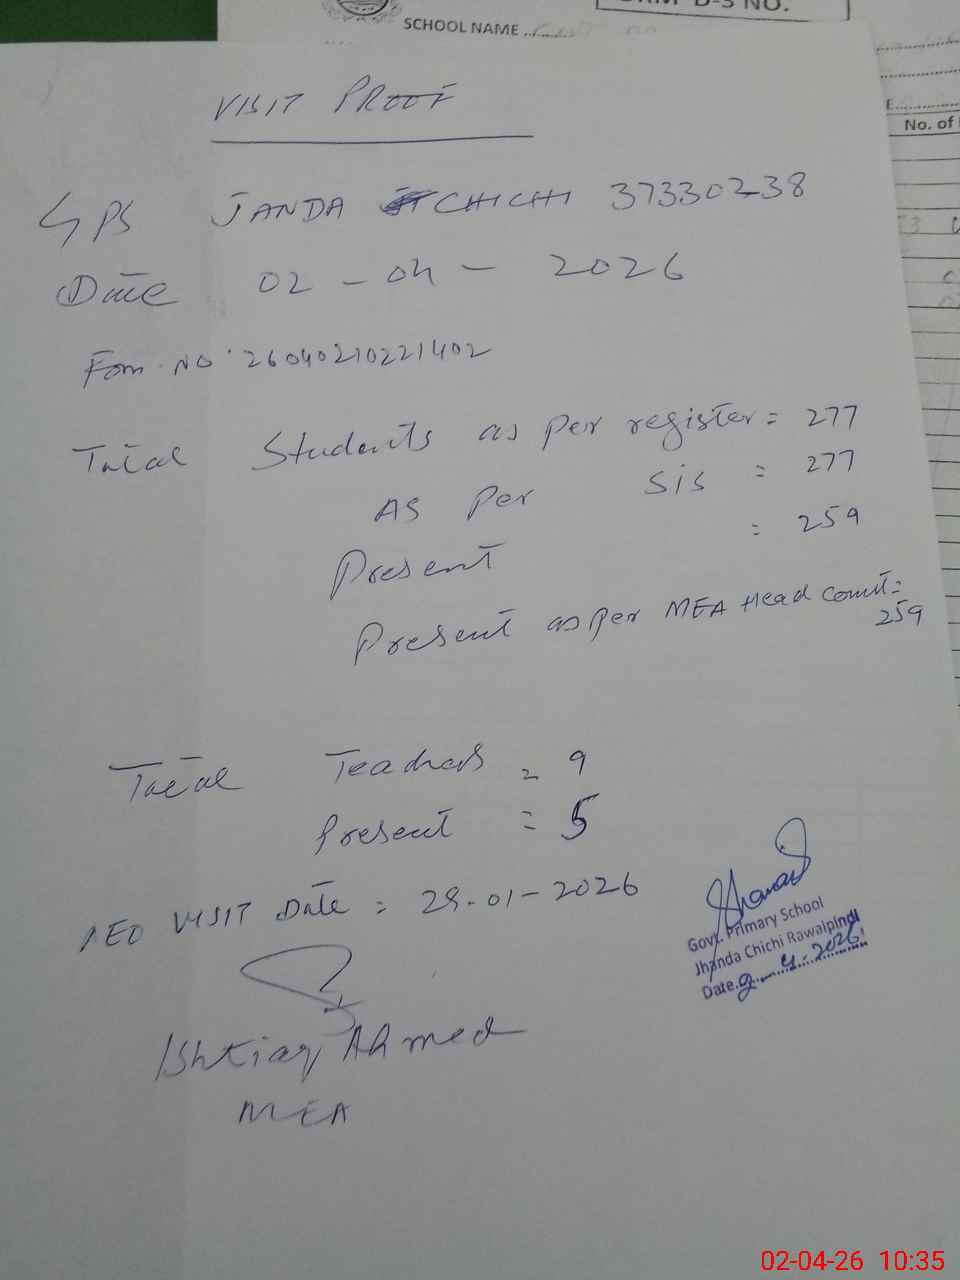 SCHOOL NAME
NO.
No. of
VISIT PROOF
GPS JANDA CHICHI 37330238
Date 02-04-2026
Fom. NO. 26040210221402
Total Students as per register = 277
AS Per SIS = 277
Present = 259
Present as per MEA Head Count =
259
Total Teachers = 9
Present = 5
AEO VISIT Date = 29-01-2026
Ishtiaq Ahmed
MEA
Govt. Primary School
Jhanda Chichi Rawalpindi
Date 2-4-2026
02-04-26 10:35